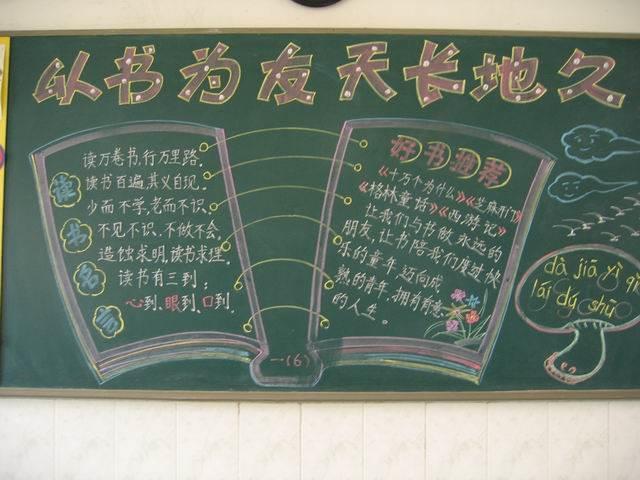 以书为友天长地久
读书名言
读万卷书,行万里路。
读书百遍,其义自现。
少而不学,老而不识。
不见不识、不做不会。
造蚀求明,读书求理。
读书有三到:
心到、眼到、口到。
好书推荐
《十万个为什么》《芝麻开门》
《格林童话》《西游记》
让我们与书做永远的
朋友,让书陪我们度过快
乐的童年,迈向成
熟的青年,拥有有意
的人生。
一(6)
dà jiā yì qǐ
lái dú shū